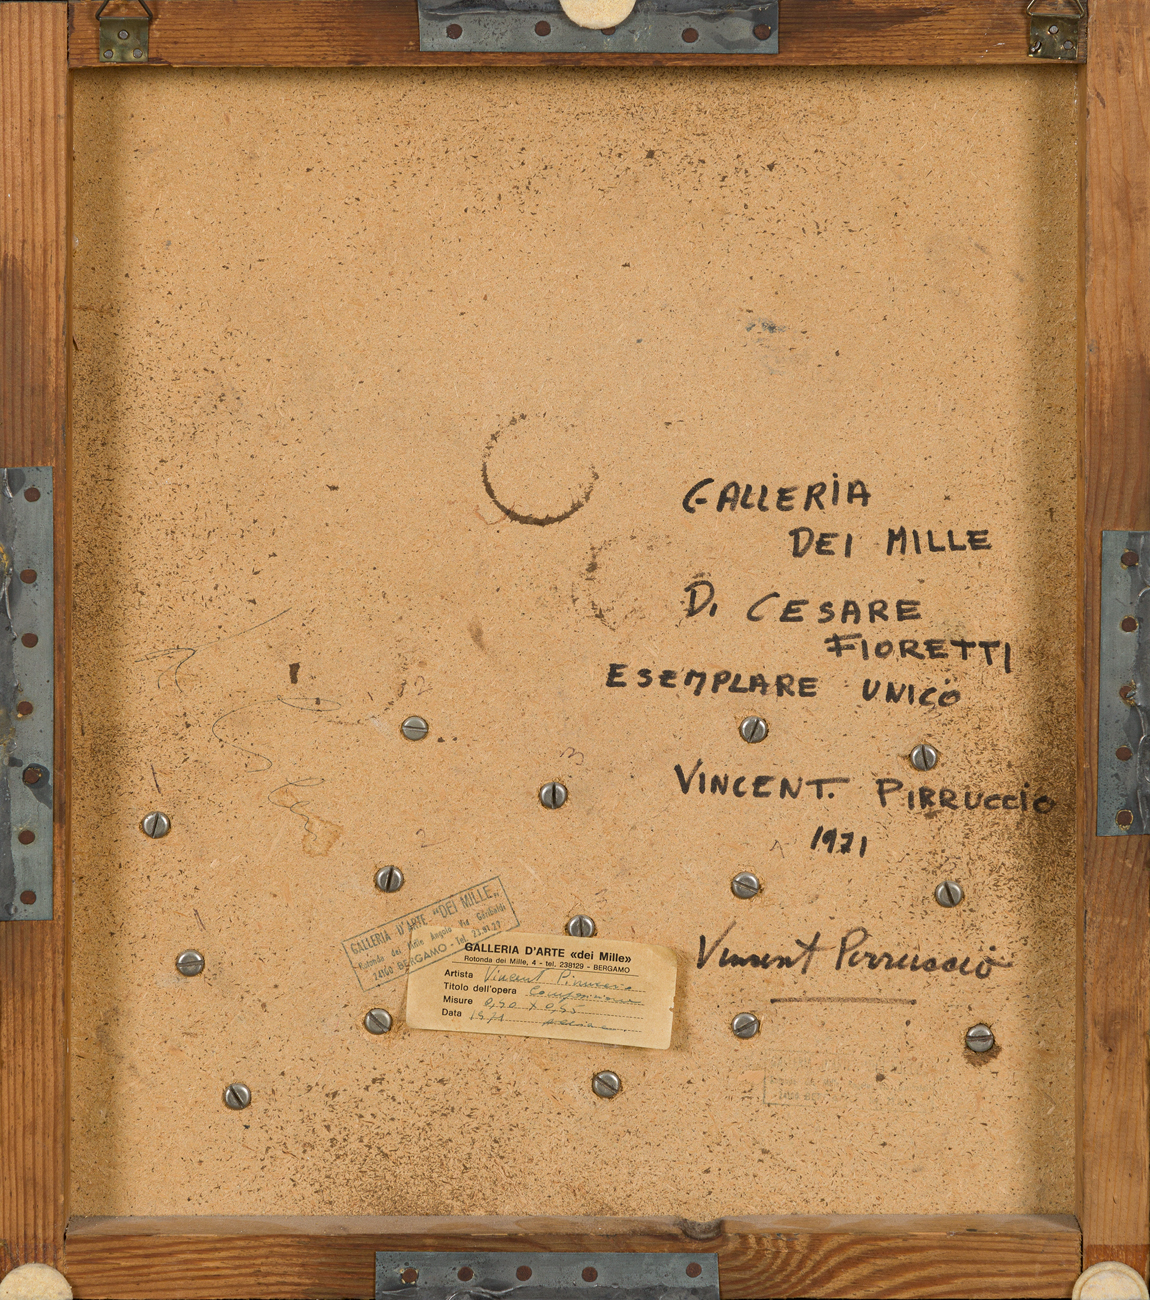 GALLERIA
DEI MILLE
Di CESARE
FIORETTI
ESEMPLARE UNICO
VINCENT. PIRRUCCIO
1971
Vincent Pirruccio
GALLERIA D'ARTE "DEI MILLE"
Rotonda dei Mille Angolo Via Garibaldi
24100 BERGAMO - Tel.
GALLERIA D'ARTE «dei Mille»
Rotonda dei Mille, 4 - tel. 238129 - BERGAMO
Artista Vincent Pirruccio
Titolo dell'opera Composizione
Misure 0,70 x 0,55
Data 1971
12
3
2